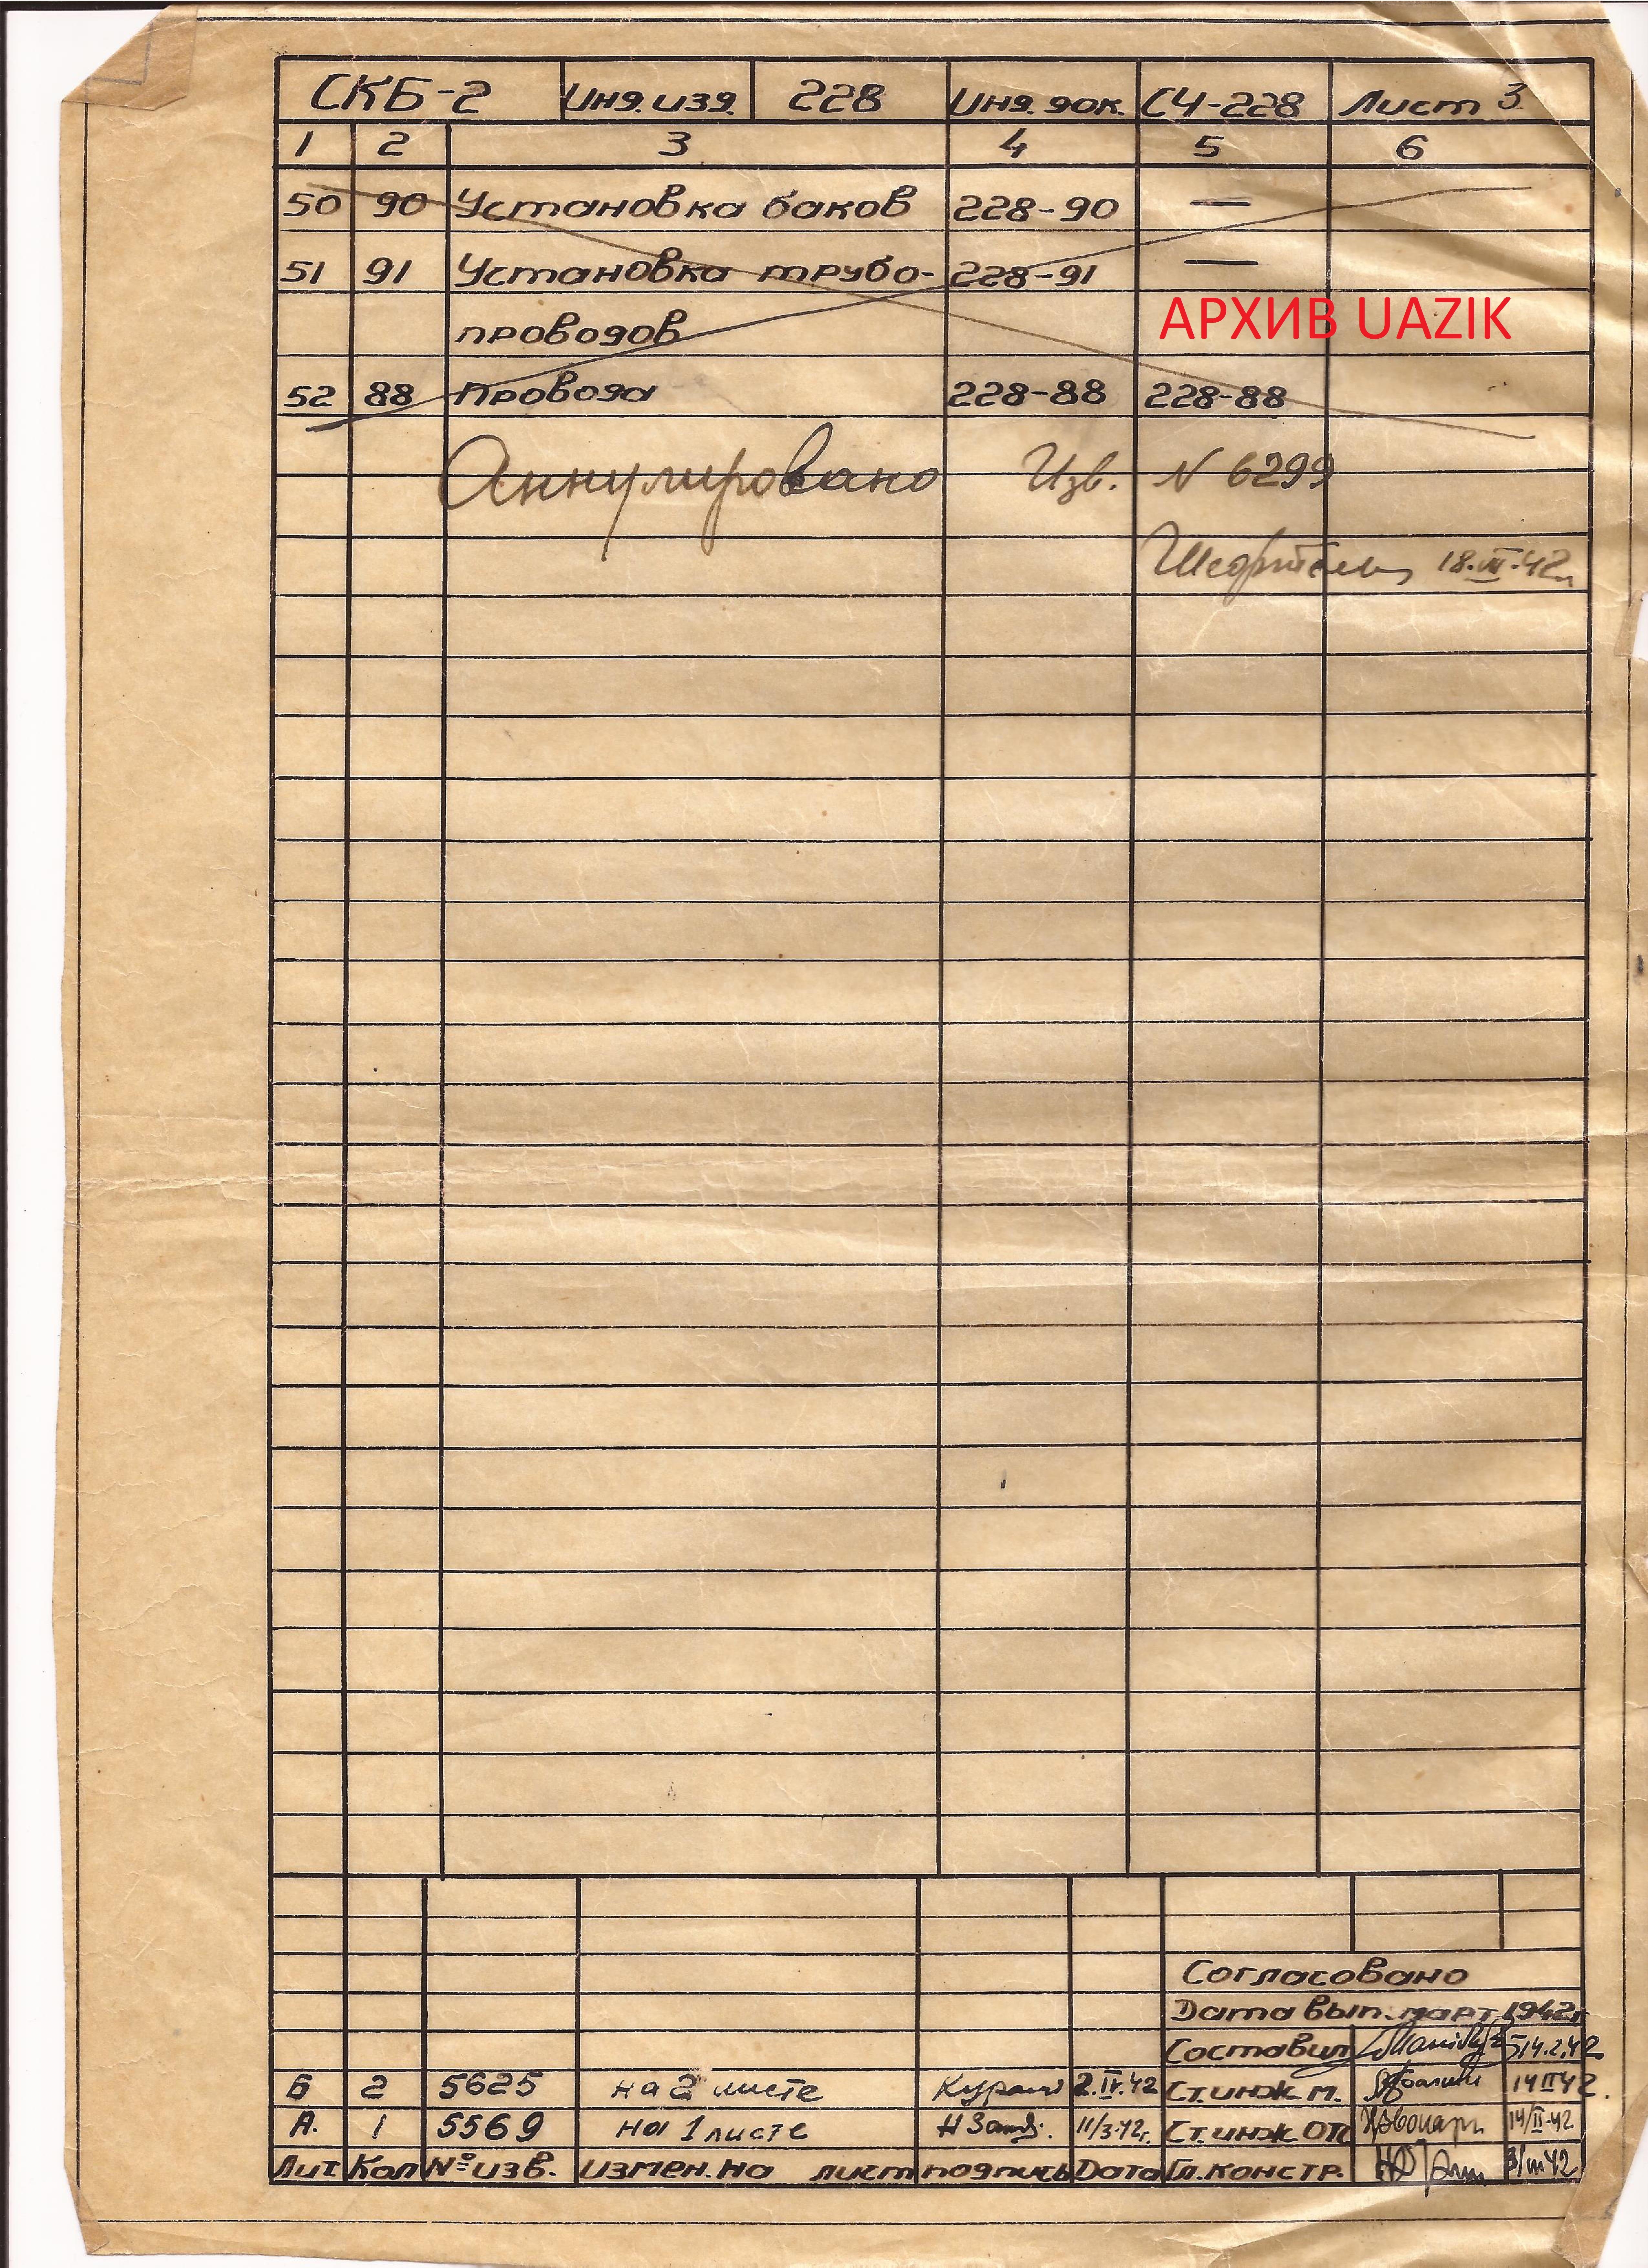 СКБ-2 Инд. изд. 228 Инд. док. СЧ-228 Лист 3
1 2 3 4 5 6
50 90 Установка баков 228-90 —
51 91 Установка трубо- 228-91 —
проводов
АРХИВ UAZIK
52 88 Провода 228-88 228-88
Аннулировано Изв. N 6299
42г
Согласовано
Дата вып. март 1942г
Составил 14.2.42
Б 2 5625 на 2 листе 2.IV.42 Ст. инж. м. 14 II 42.
А. 1 5569 на 1 листе 11/3-42г. Ст. инж. ОТ 14/II-42
Лит Кол № изв. измен. на лист подпись Дата Гл. констр. 3/III 42